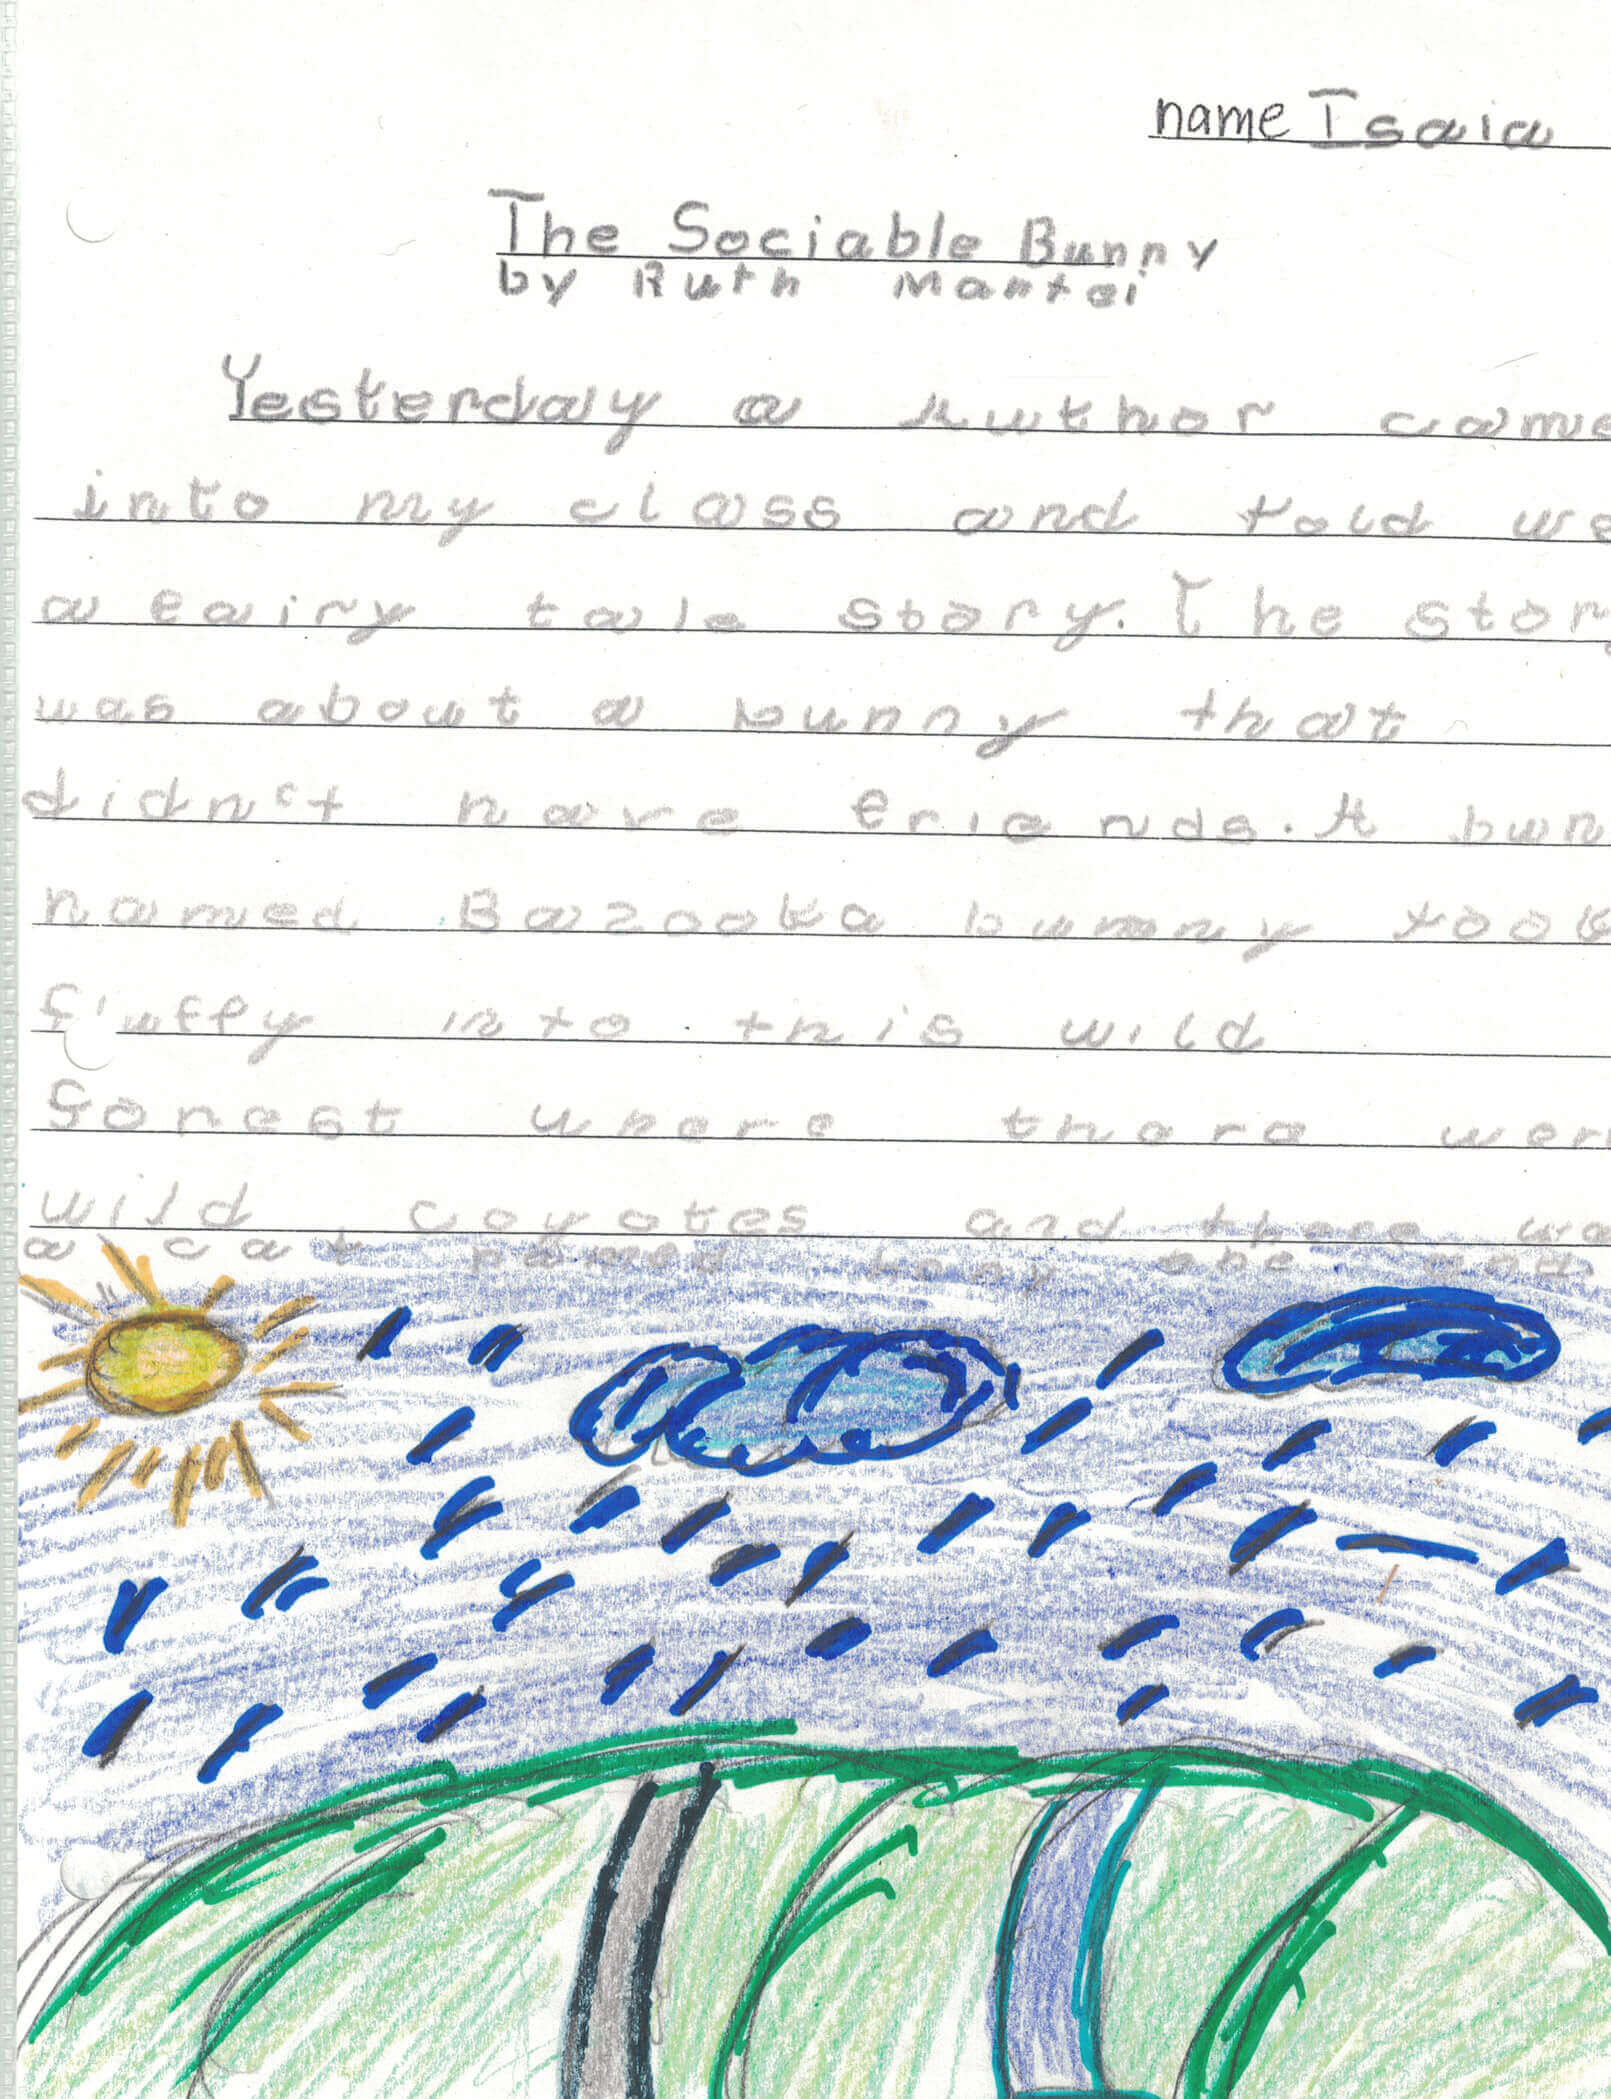 name Isaia
The Sociable Bunny
by Ruth Mantei
Yesterday a Author came
into my class and told we
a fairy tale story. The story
was about a bunny that
didn't have friends. A bun
named Bazooka bunny took
fluffy into this wild
forest where there wer
wild coyotes and there wa
a cat named the